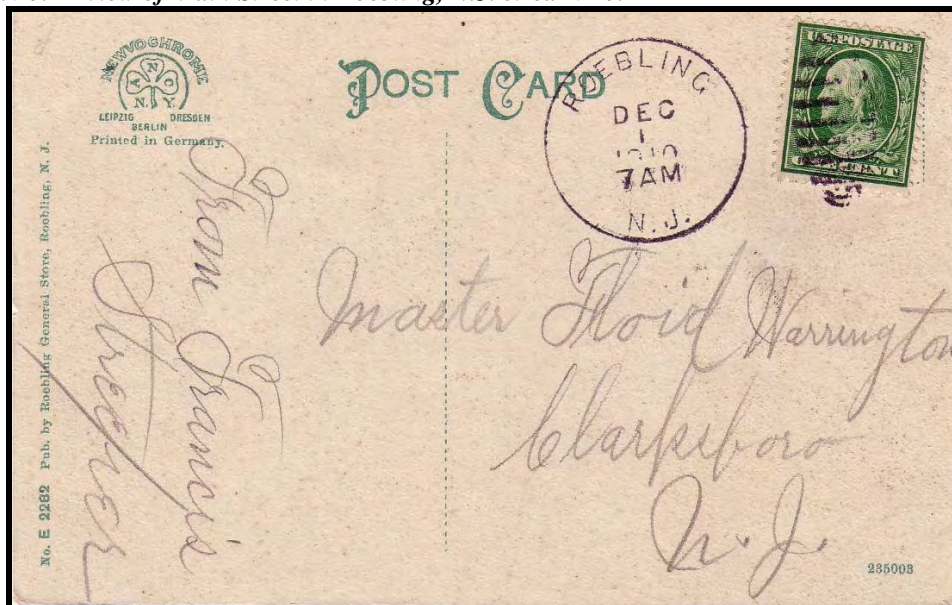 NEWVOCHROME
A N C
N. Y.
LEIPZIG DRESDEN
BERLIN
Printed in Germany.
POST CARD
ROEBLING
DEC
1
1910
7AM
N. J.
U.S. POSTAGE
ONE CENT
No. E 2282 Pub. by Roebling General Store, Roebling, N. J.
From Francis
Master Floid Warrington
Clarksboro
N. J.
235003